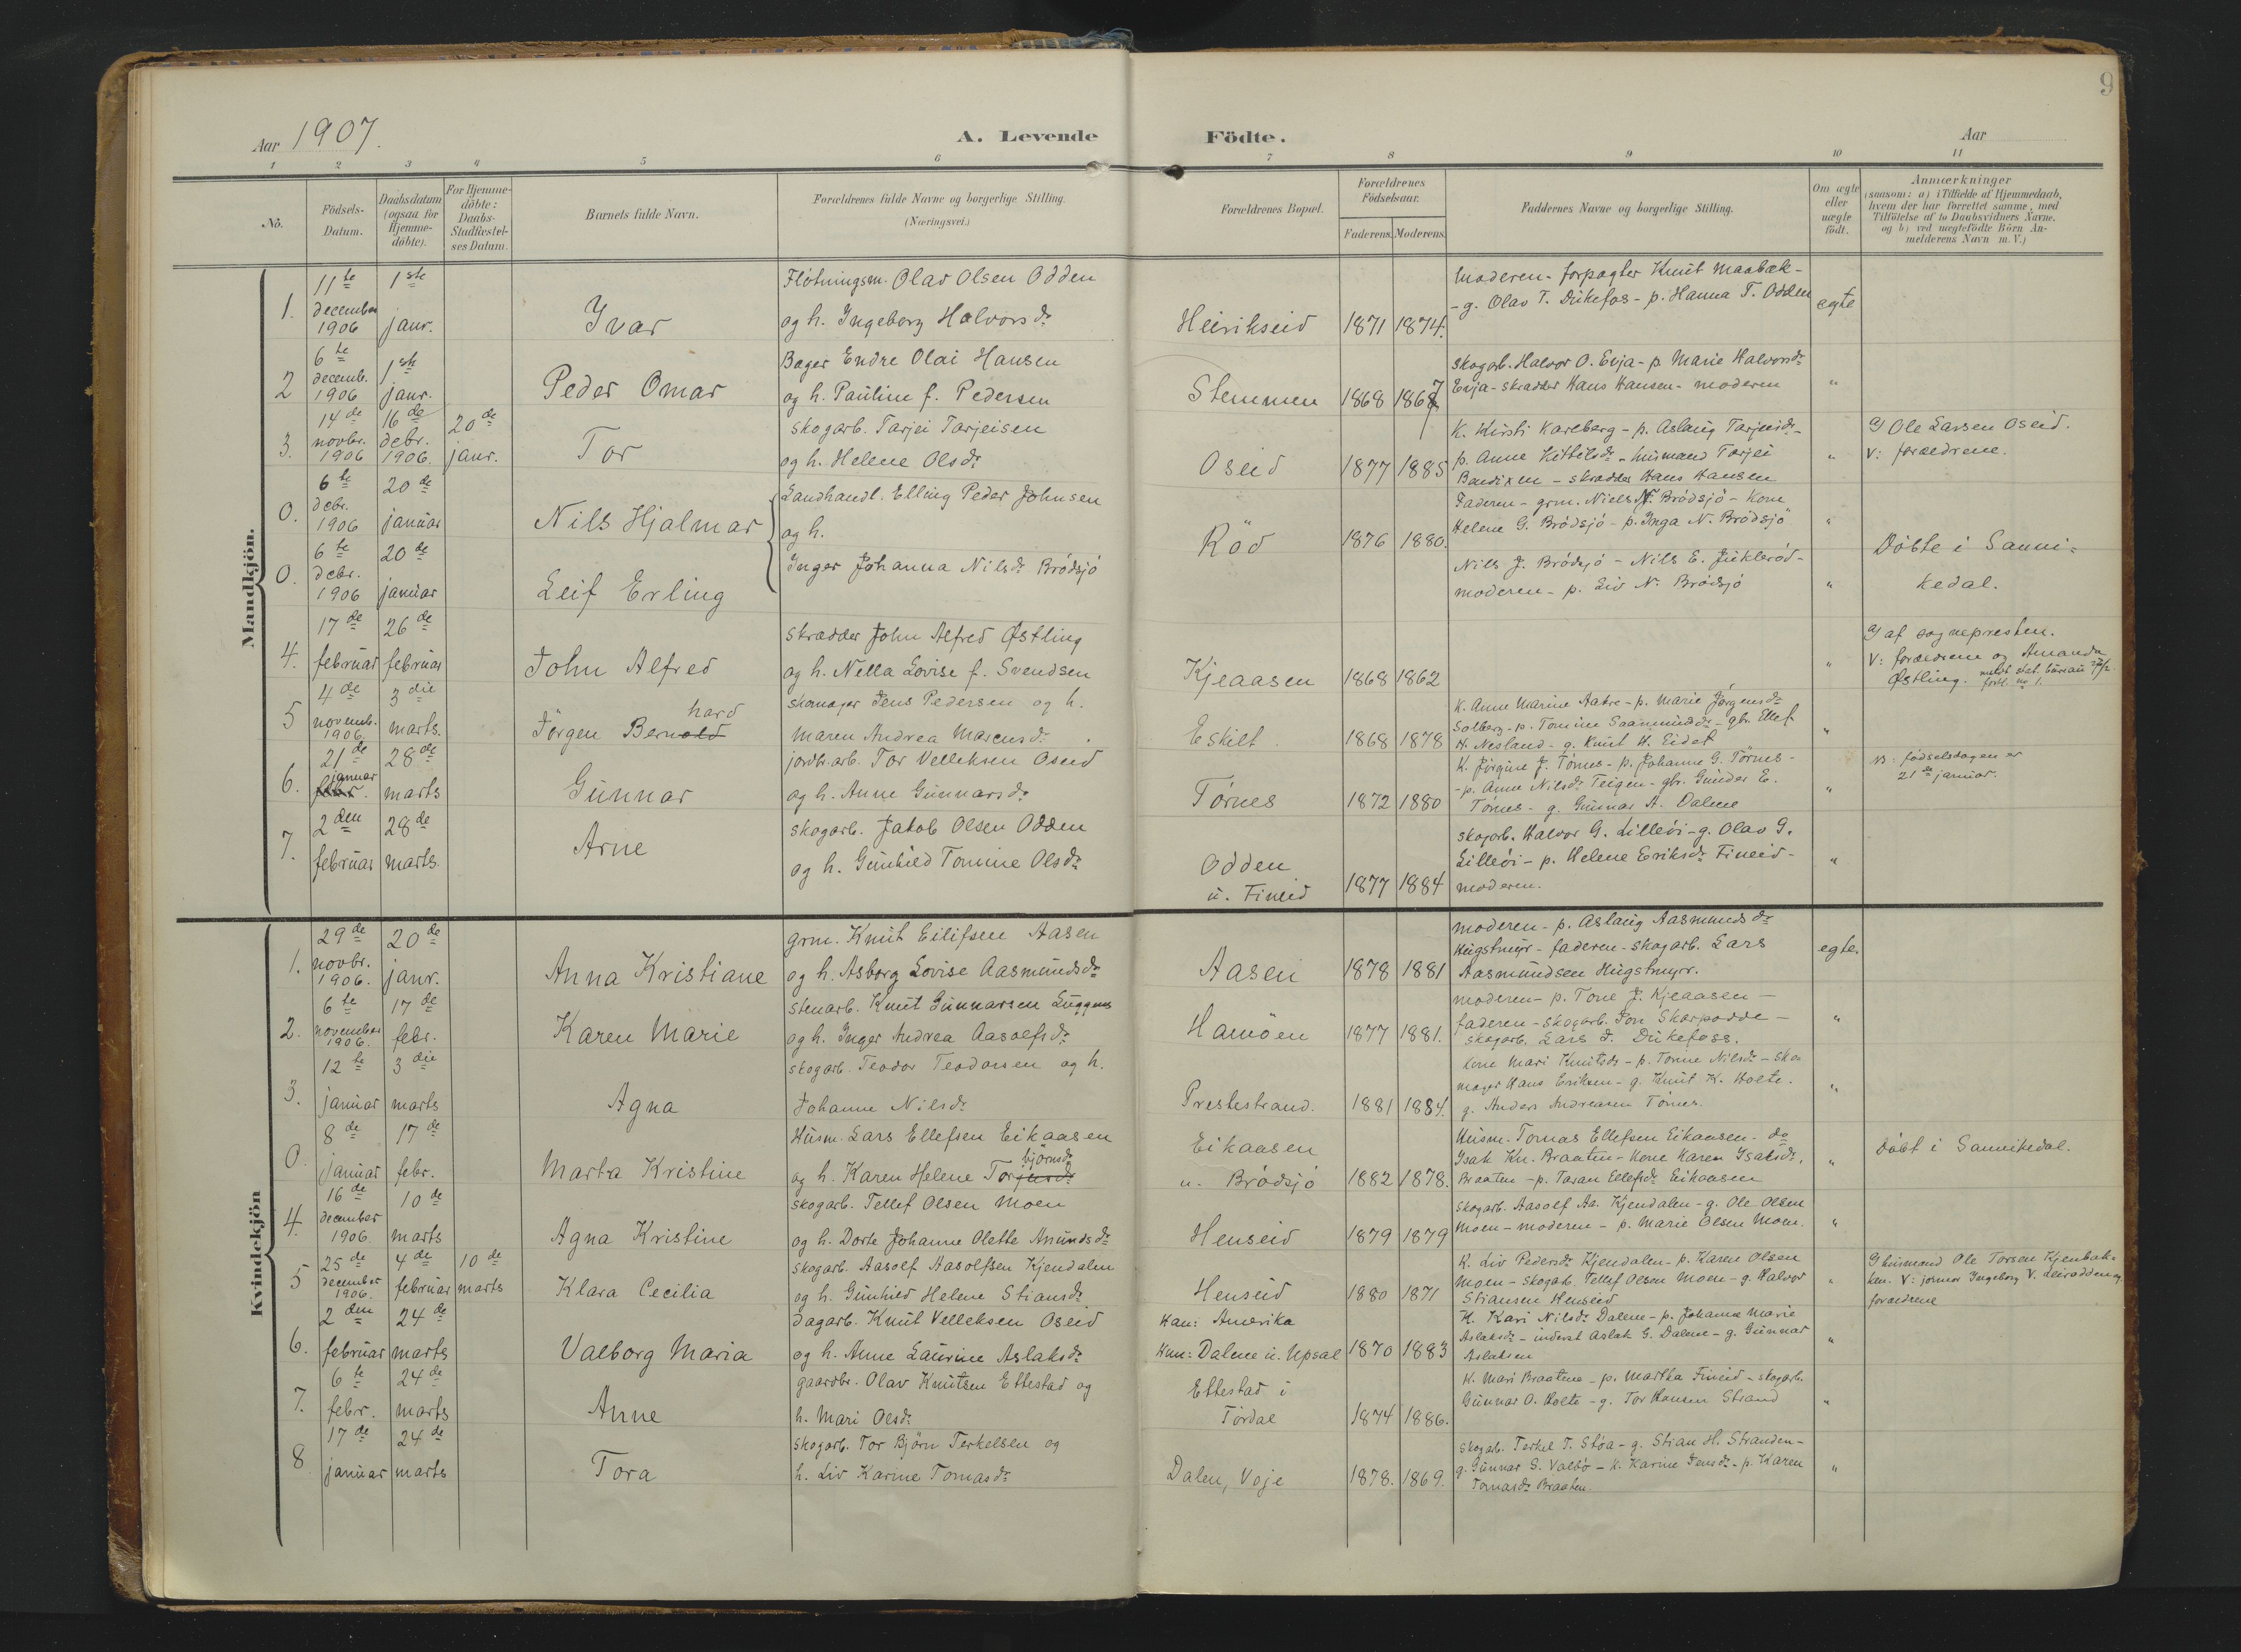 9
Aar 1907.
A. Levende Födte.
Aar
1 2 3 4 5 6 7 8 9 10 11
No.
Födsels-Datum.
Daabsdatum (ogsaa for Hjemmedöbte).
For Hjemmedöbte: Daabs-Stadfæstelses Datum.
Barnets fulde Navn.
Forældrenes fulde Navne og borgerlige Stilling. (Næringsvei.)
Forældrenes Bopæl.
Forældrenes Födselsaar.
Faderens. Moderens.
Faddernes Navne og borgerlige Stilling.
Om ægte eller uægte födt.
Anmærkninger
(saasom: a) i Tilfælde af Hjemmedaab,
hvem der har forrettet samme, med
Tilföielse af to Daabsvidners Navne.
og b) ved uægtefödte Börn An-
melderens Navn m. V.)
Mandkjön.
1. 11te december 1906 1ste janr. Ivar
Flötningsm. Olav Olsen Odden
og h. Ingeborg Halvorsdr
Heirikseid 1871 1874.
moderen - forpagter Knut Maabæk-
- g. Olav T. Dukefos - p. Hanna T. Odden
egte
2 6te decemb. 1906 1ste janr. Peder Omar
Bager Endre Olai Hansen
og h. Pauline f. Pedersen
Stemmen 1868 1867
skogarb. Halvor O. Evja - p. Marie Halvorsdr
Evja - skradder Hans Hansen - moderen
"
3. 14de novbr. 1906 16de debr. 1906. 20de janr. Tor
skogarb. Tarjei Tarjeisen
og h. Helene Olsdr
Oseid 1877 1885
K. Kirsti Karlberg - p. Aslaug Tarjeisdr-
p. Anne Kittilsdr - husmand Tarjei
Bendixen - skradder Hans Hansen
"
a/ Ole Larsen Oseid.
V: forældrene.
0. 6te debr. 1906 20de januar Nils Hjalmar
Landhandl. Elling Peder Johnsen
og h.
Inger Johanna Nilsdr Brödsjö
Röd 1876 1880.
Faderen - grm. Niels N. Brödsjö - Kone
Helene G. Brödsjö - p. Inga N. Brödsjö
"
0. 6te debr. 1906 20de januar Leif Erling
Nils J. Brödsjö - Nils E. Jukleröd-
moderen - p. Liv N. Brödsjö
"
Döbte i Sanni-
kedal.
4. 17de februar 26de februar John Alfred
skradder John Alfred Østling
og h. Nella Lovise f. Svendsen
Kjeaasen 1868 1862
"
a/ af sognepresten.
V: forældrene og Amanda
Østling.
5 4de novemb. 1906. 3die marts. Jörgen Bernold hard
skomager Jens Pedersen og h.
Maren Andrea Marensdr.
Eskilt 1868 1878
K. Anne Marine Aabre - p. Marie Jörgensdr
Solberg - p. Tomine Saamundsdr - gbr. Ellef
H. Nesland - g. Knut H. Eidet
"
6. 21de januar febr. 28de marts Gunnar
jordbr.arb. Tor Velleksen Oseid
og h. Anne Gunnarsdr
Törnes 1872 1880
K. Jörgine J. Törnes - p. Johanne G. Törnes -
- p. Anne Nilsdr Teigen - gbr. Gunder E.
Törnes - g. Gunnar A. Dalene
"
NB: födselsdagen er
21de januar.
7. 2den februar 28de marts. Arne
skogarb. Jakob Olsen Odden
og h. Gunhild Tomine Olsdr
Odden
u. Fineid 1877 1884
skogarb. Halvor G. Lilleöi - g. Olav G.
Lilleöi - p. Helene Eriksdr Fineid -
moderen.
"
Kvindekjön
1. 29de novbr. 1906. 20de janr. Anna Kristiane
grm. Knut Eilifsen Aasen
og h. Asborg Lovise Aasmundsdr
Aasen 1878 1881
moderen - p. Aslaug Aasmundsdr
Hugstmyr - faderen - skogarb. Lars
Aasmundsen Hugstmyr.
egte.
2. 6te november 1906. 17de febr. Karen Marie
stenarb. Knut Gunnarsen Luggnes
og h. Inger Andrea Aasolfsdr
Hamöen 1877 1881.
moderen - p. Tone J. Kjeaasen -
faderen - skogarb. Jon Skarpodde -
skogarb. Lars J. Dukefoss.
"
3. 12te januar 3die marts Agna
skogarb. Teodor Teodorsen og h.
Johanne Nilsdr
Prestestrand. 1881 1884.
kone Mari Knutsdr - p. Tomine Nilsdr - sko-
mager Hans Eriksen - g. Knut K. Holte.
g. Anders Andreasen Törnes.
"
0. 8de januar 17de febr. Marta Kristine
Husm. Lars Ellefsen Eikaasen
og h. Karen Helene Torjusdr björnsdr
Eikaasen
u. Brödsjö 1882 1878.
Husm. Tomas Ellefsen Eikaasen - do
Isak Kn. Braaten - kone Karen Isaksdr,
Braaten - p. Taran Ellefsdr Eikaasen
"
Döbt i Sannikedal.
4. 16de december 1906. 10de marts Agna Kristine
skogarb. Tellef Olsen Moen
og h. Dorte Johanne Olette Anundsdr
Henseid 1879 1879
skogarb. Aasolf Aa. Kjendalen - g. Ole Olsen
Moen - moderen - p. Marie Olsen Moen.
"
5 25de december 1906. 4de februar 10de marts Klara Cecilia
skogarb. Aasolf Aasolfsen Kjendalen
og h. Gunhild Helene Stiansdr
Henseid 1880 1871
K. Liv Pedersdr Kjendalen - p. Karen Olsen
Moen - skogarb. Tellef Olsen Moen - g. Halvor
Stiansen Henseid
"
a/ husmand Ole Torsen Kjenbak-
ken. V: jormor Ingeborg V. Leirodden og
forældrene
6. 2den februar 24de marts Valborg Maria
Dagarb. Knut Velleksen Oseid
og h. Anne Laurine Aslaksdr
Han: Amerika
Hun: Dalene u. Upsal 1870 1883
K. Kari Nilsdr Dalene - p. Johanne Marie
Aslaksdr - inderst Aslak G. Dalene - g. Gunnar
Aslaksen
"
7. 6te febr. 24de marts Anne
gaardbr. Olav Knutsen Ettestad og
h. Mari Olsdr
Ettestad i
Tördal 1874 1886.
K. Mari Braatene - p. Martha Fineid - skogarb.
Gunnar O. Holte - g. Tor Hansen Strand
"
8 17de januar 24de marts Tora
skogarb. Tor Björn Terkelsen og
h. Liv Karine Tomasdr
Dalen, Voje 1878. 1869.
skogarb. Terkel T. Stöa - g. Stian H. Stranden -
g. Gunnar S. Valbö - K. Karine Jensdr - p. Karen
Tomasdr Braaten.
"